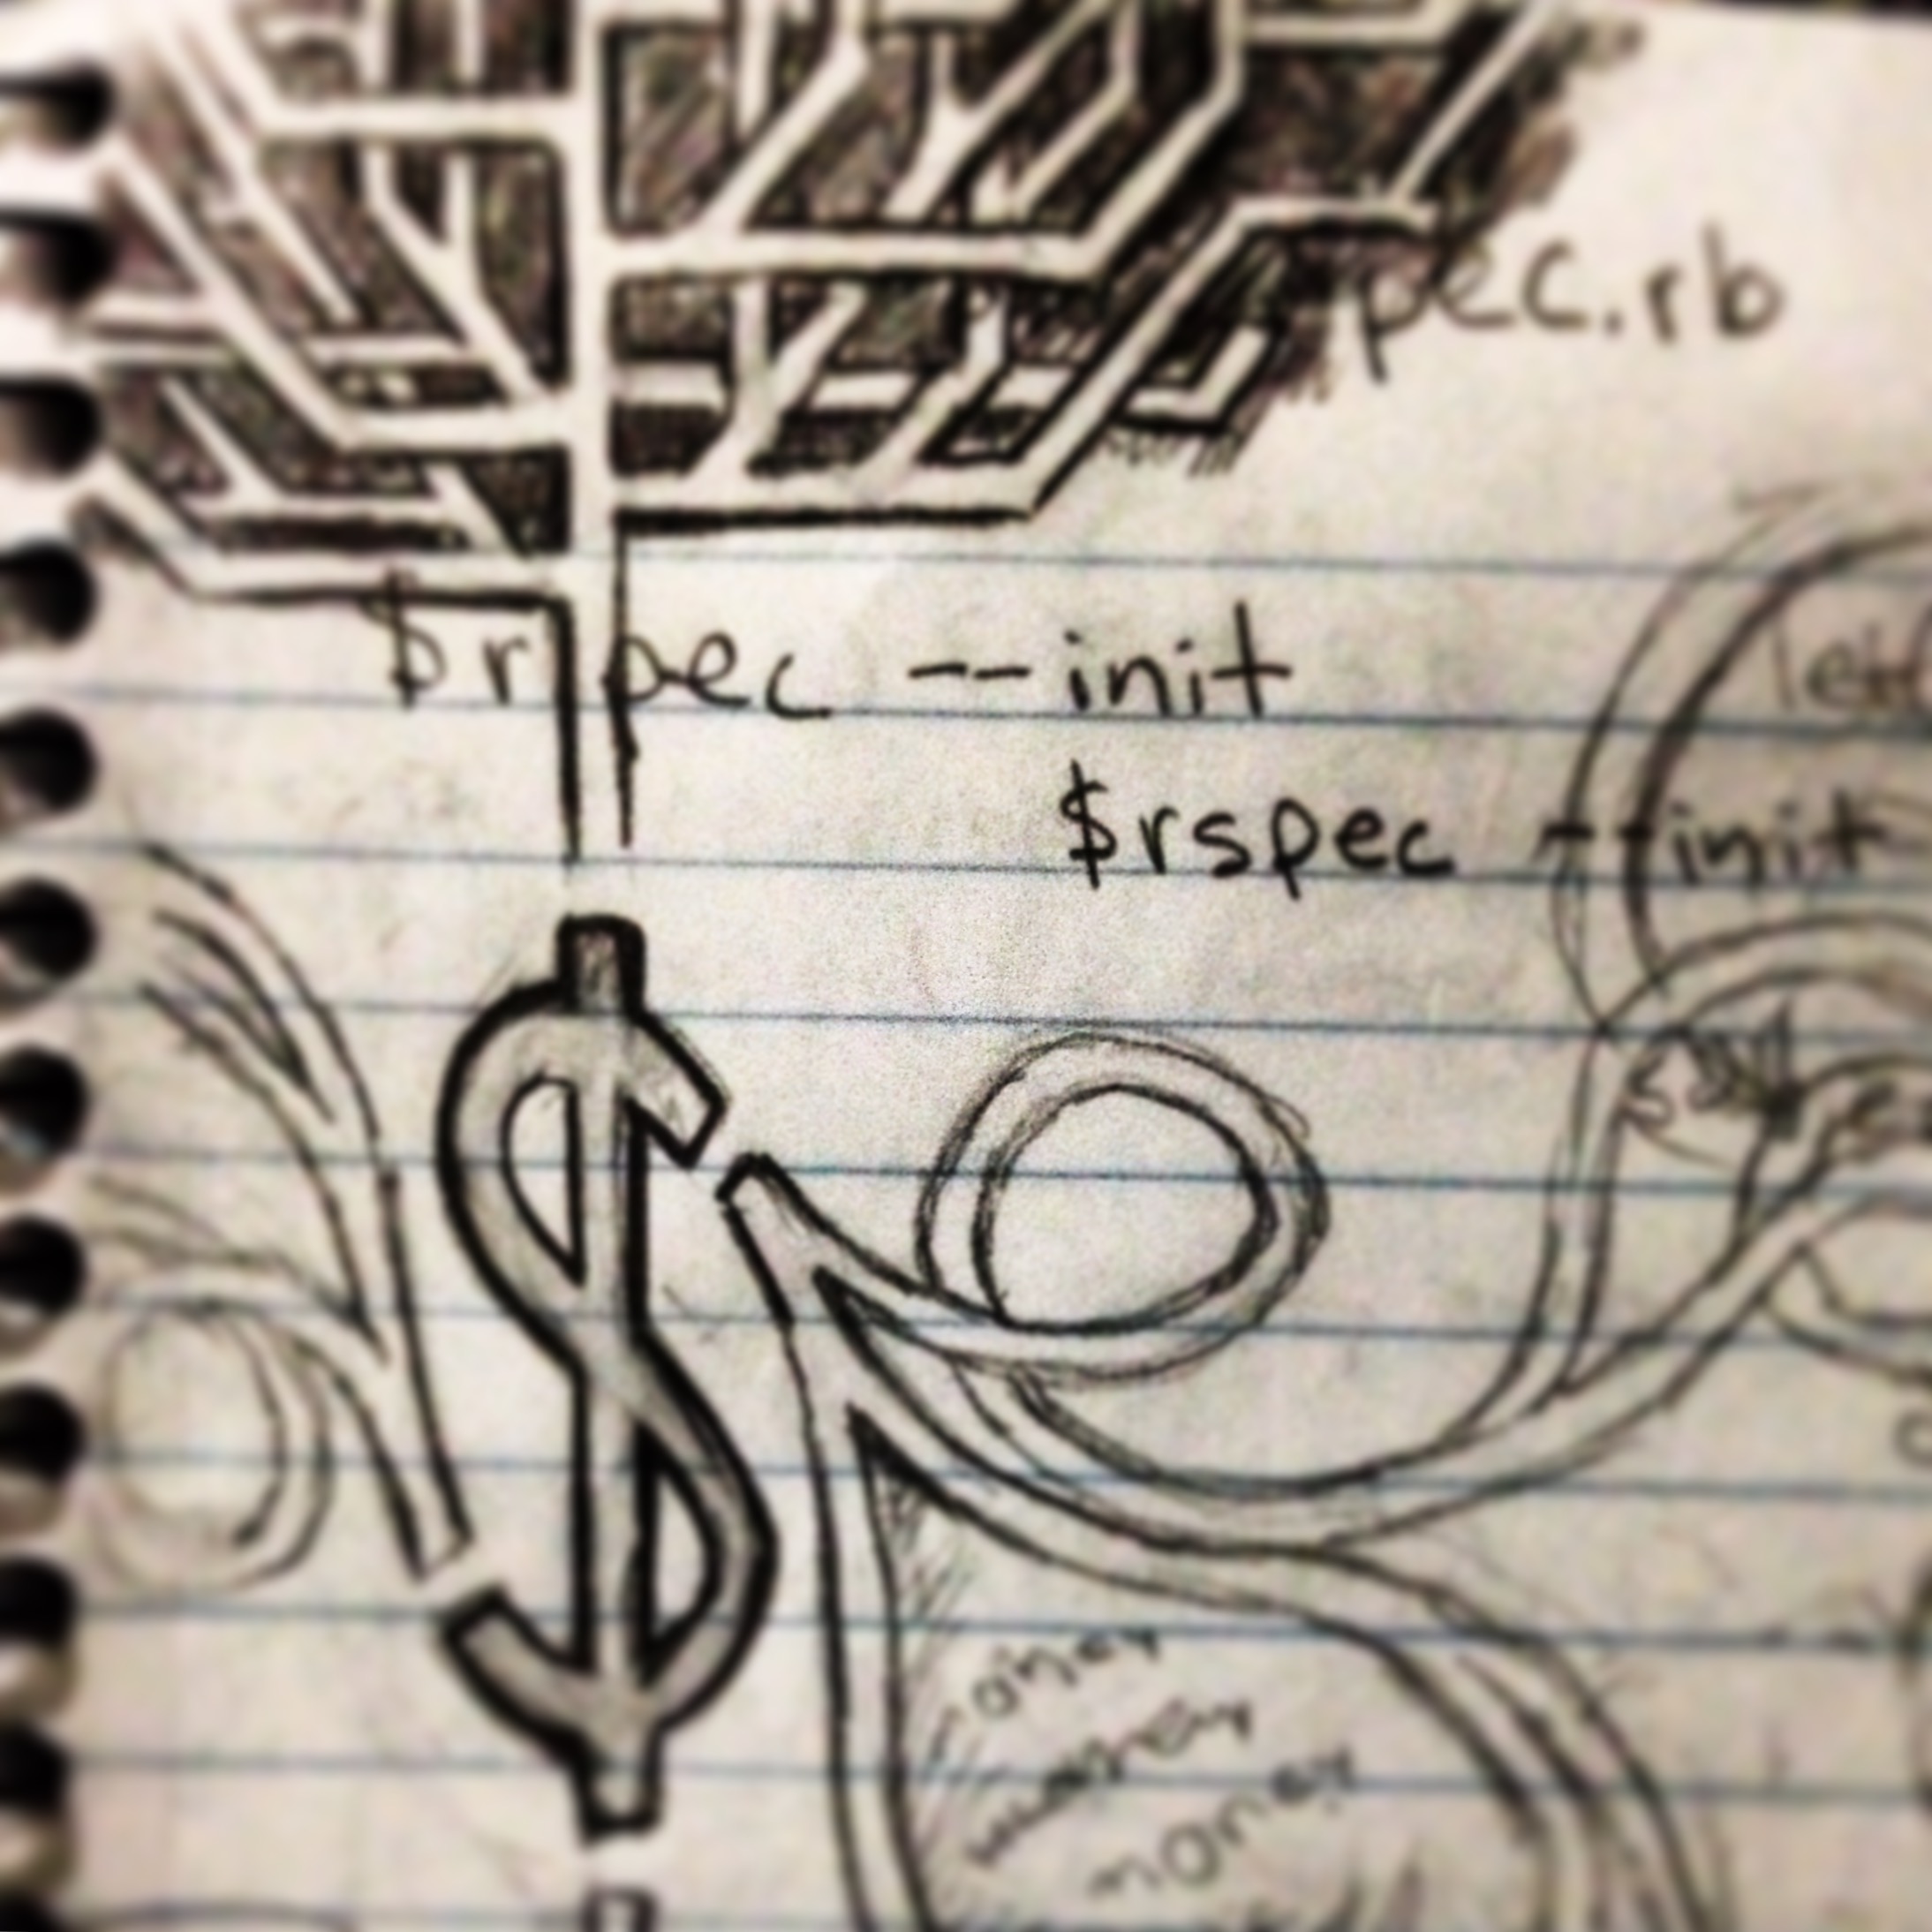 pec.rb
$r pec --init
$rspec --init
money
money